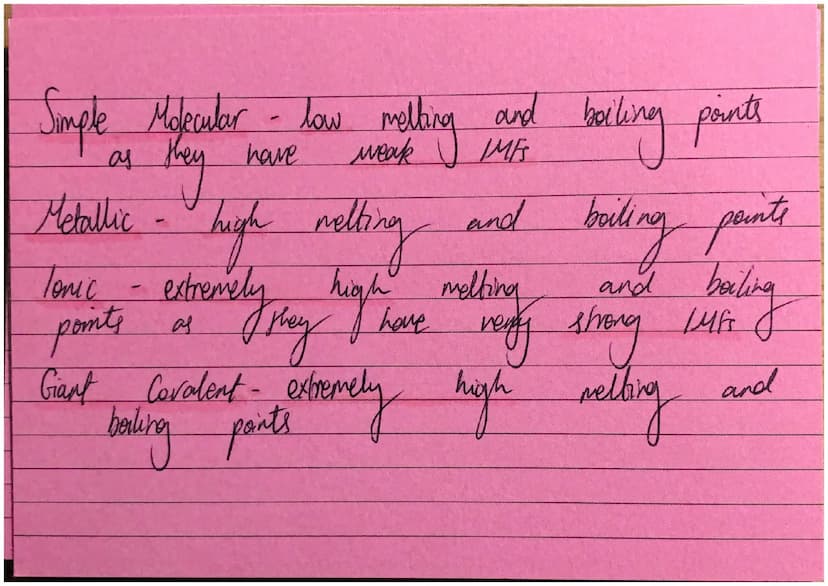 Simple Molecular - low melting and boiling points
as they have weak IMFs
Metallic - high melting and boiling points
Ionic - extremely high melting and boiling
points as they have very strong IMFs
Giant Covalent - extremely high melting and
boiling points